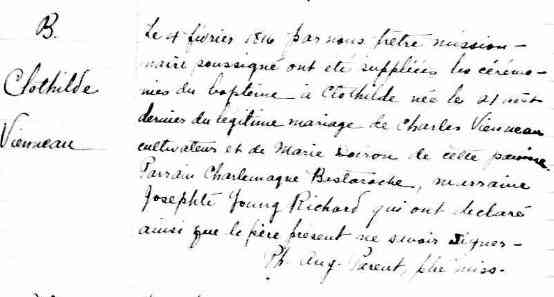 B.
Clothilde
Vienneau
Le 4 février 1816 par nous prêtre mission-
naire soussigné ont été suppléées les cérémo-
nies du baptême à Clothilde née le 21 août
dernier du légitime mariage de Charles Vienneau
cultivateur et de Marie Doiron de cette paroisse.
Parrain Charlemagne Bastarache, marraine
Josephte Young Richard qui ont déclaré
ainsi que le père présent ne savoir signer-
Ph. Aug. Parent, ptre miss-